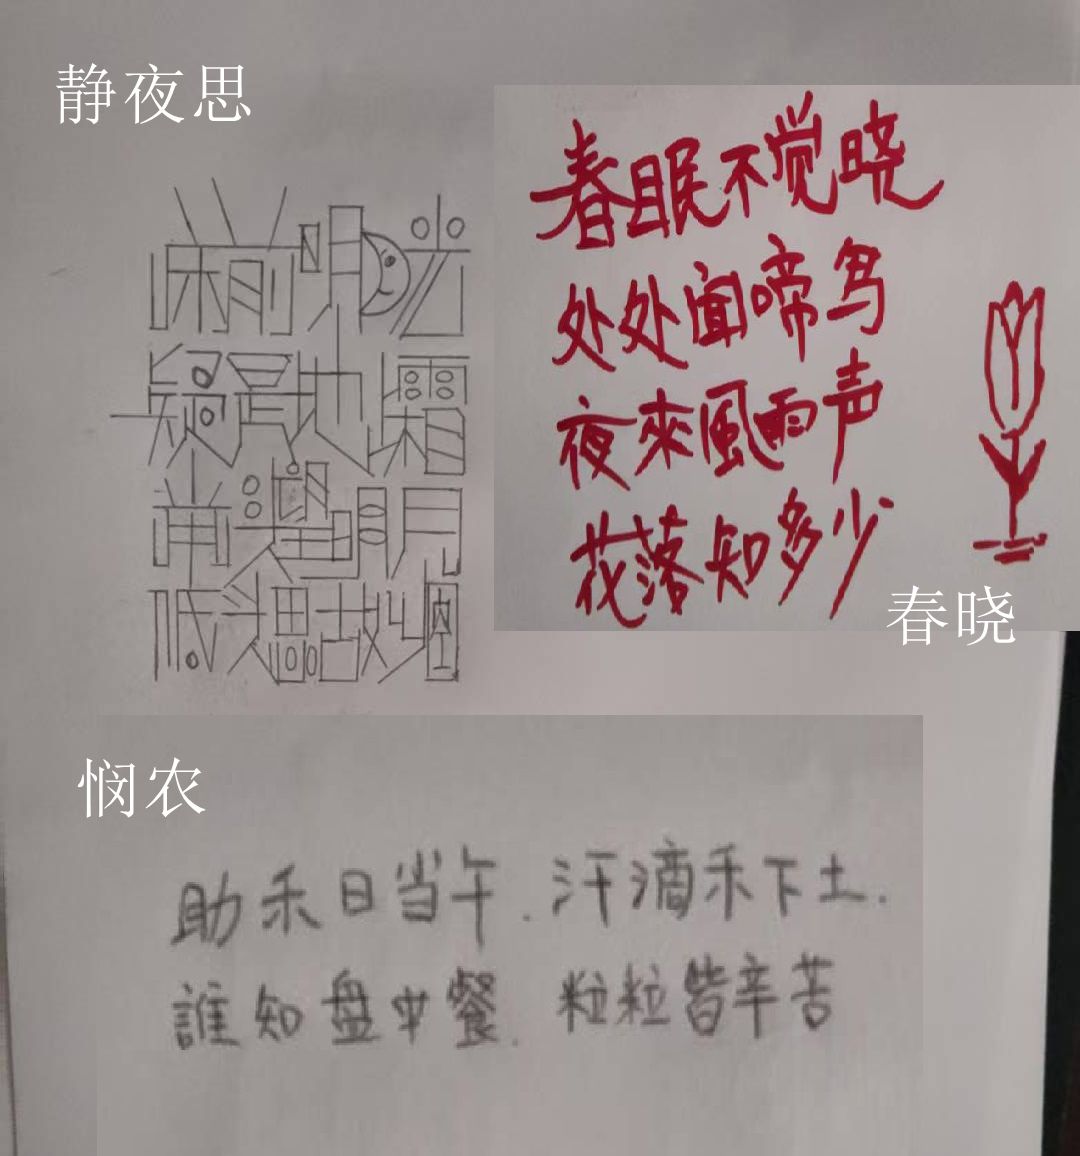 静夜思
床前明月光
疑是地上霜
举头望明月
低头思故乡
春眠不觉晓
处处闻啼鸟
夜來風雨声
花落知多少
春晓
悯农
助禾日当午.汗滴禾下土.
誰知盘中餐.粒粒皆辛苦